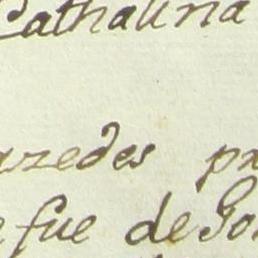 Cathalina
azedes pr
e fue de Go